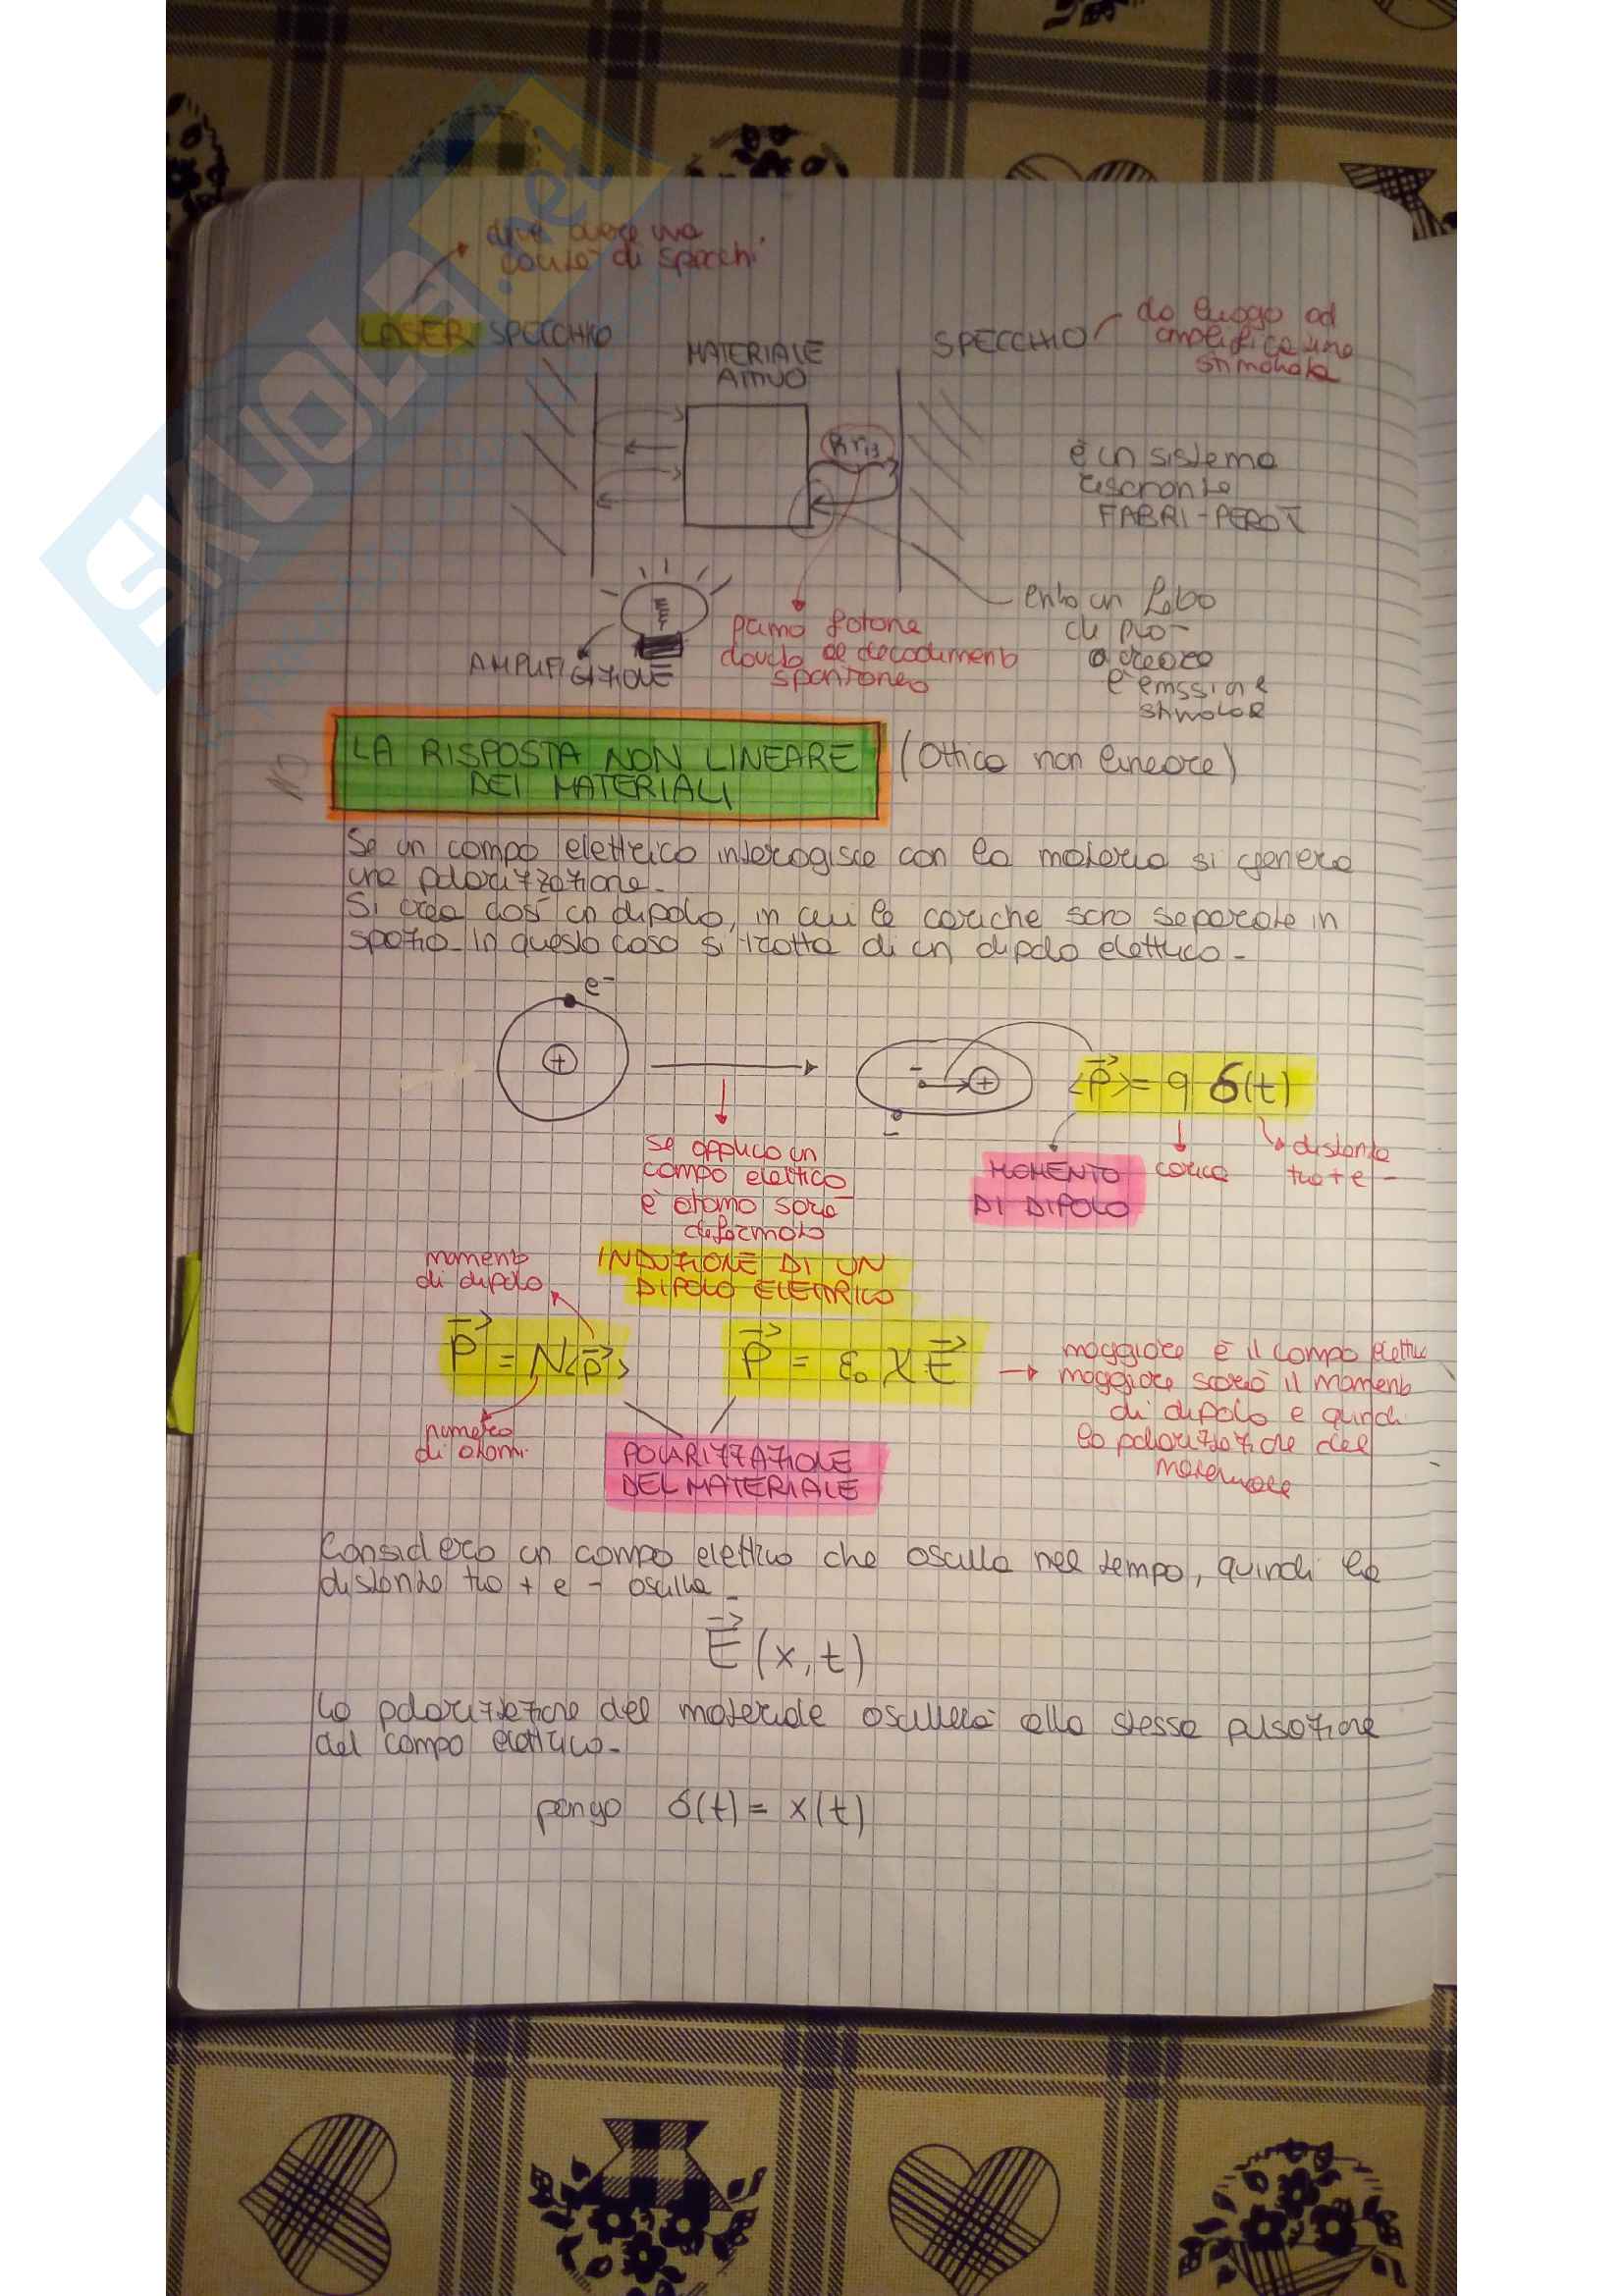 deve avere una
coppia di specchi
LASER SPECCHIO
MATERIALE
ATTIVO
SPECCHIO
do luogo ad
amplificazione
stimolata
è un sistema
risonante
FABRI-PEROT
AMPLIFICAZIONE
primo fotone
dovuto al decadimento
spontaneo
entra un fotone
e emissione
LA RISPOSTA NON LINEARE
DEI MATERIALI
(Ottica non lineare)
Se un campo elettrico interagisce con la materia si genera
una polarizzazione.
Si crea così un dipolo, in cui le cariche sono separate in
spazio. In questo caso si tratta di un dipolo elettrico.
e-
+
- +
-
<P> = q δ(t)
MOMENTO
DI DIPOLO
carica
distanza
tra + e -
Se applico un
campo elettrico
l'atomo sarà
deformato
INDUZIONE DI UN
DIPOLO ELETTRICO
momento
di dipolo
P = N<p>
P = ε0 χ E
numero
di atomi
POLARIZZAZIONE
DEL MATERIALE
maggiore è il campo elettrico
maggiore sarà il momento
di dipolo e quindi
la polarizzazione del
materiale
Considero un campo elettrico che oscilla nel tempo, quindi la
distanza tra + e - oscilla.
E(x,t)
La polarizzazione del materiale oscillerà alla stessa pulsazione
del campo elettrico.
pongo δ(t) = x(t)
SKUOLA.net